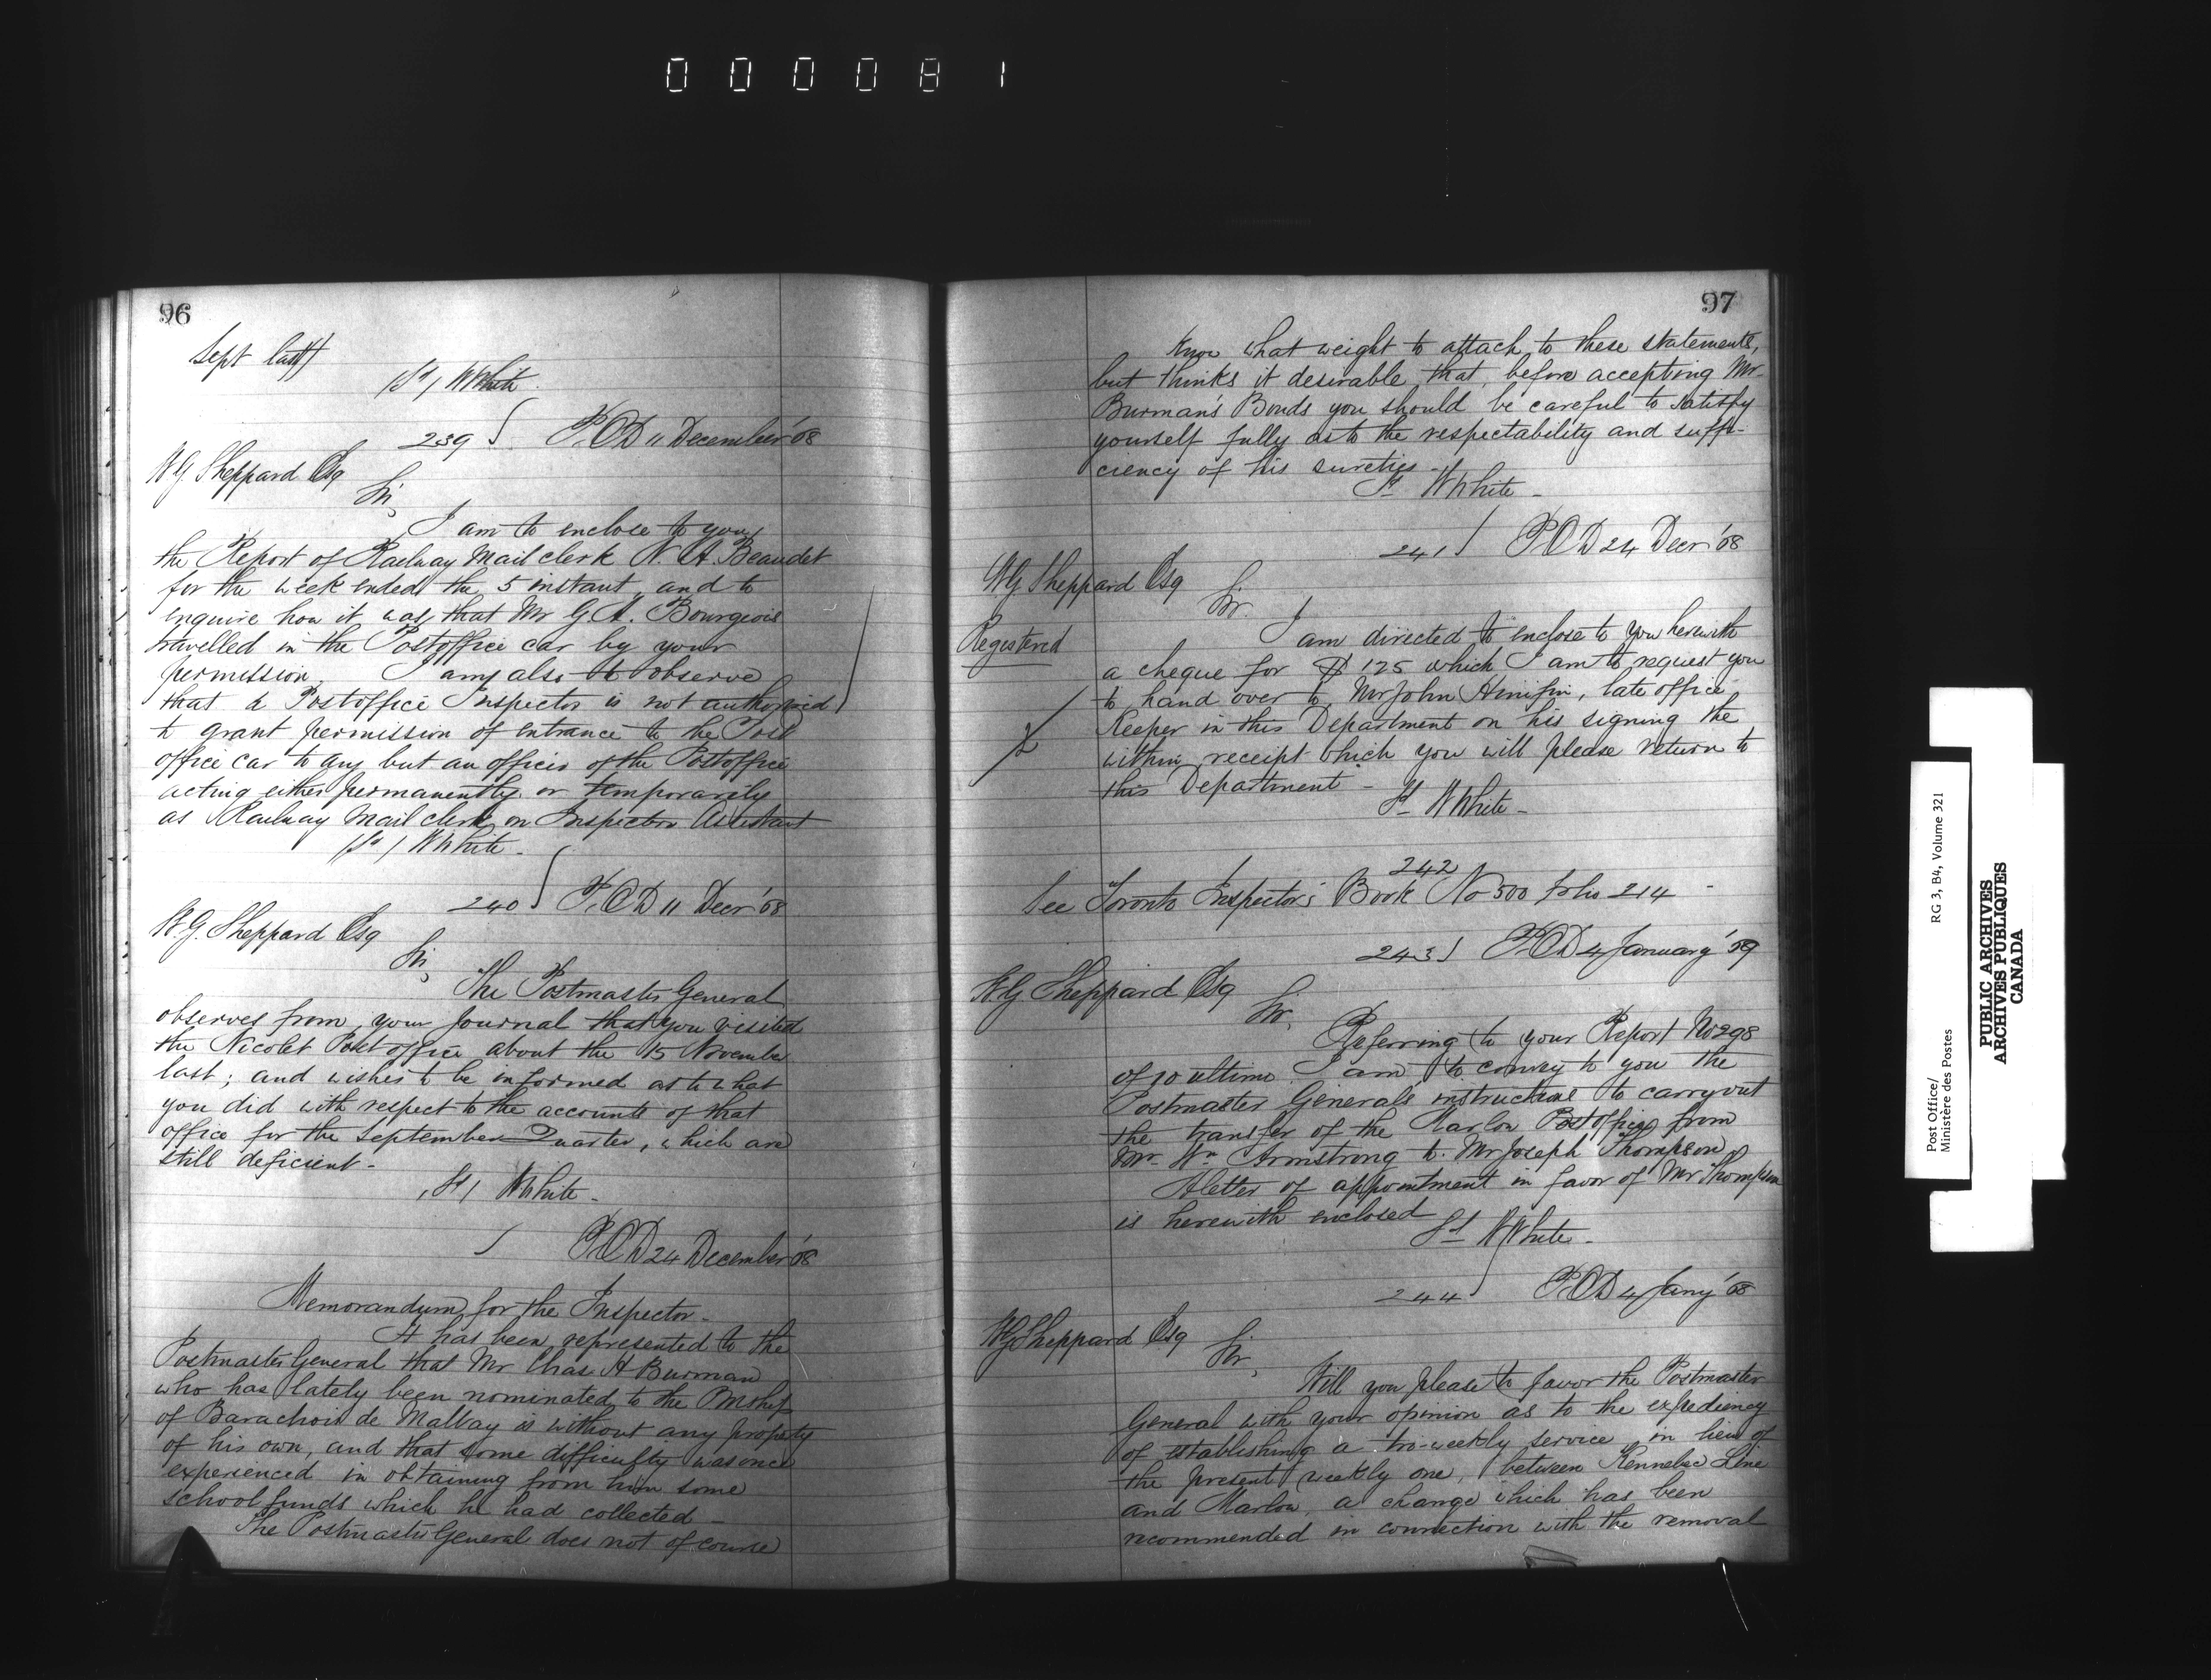 000081
96
Sept last)
(Sd) W White
239 P.O.D 11 December '68
W.G. Sheppard Esq
Sir,
I am to enclose to you
the Report of Railway Mail clerk N. A. Beaudet
for the week ended the 5 instant, and to
enquire how it was that Mr G.A. Bourgeois
travelled in the Postoffice car by your
permission. I am also to observe
that a Postoffice Inspector is not authorized
to grant permission of entrance to the Post
office car to any but an officer of the Postoffice
acting either permanently or temporarily
as Railway Mail clerk or Inspectors Assistant
(Sd) W White -
240 P.O.D 11 Decr '68
W.G. Sheppard Esq
Sir,
The Postmaster General
observes from your Journal that you visited
the Nicolet Post office about the 15 November
last; and wishes to be informed as to what
you did with respect to the accounts of that
office for the September Quarter, which are
still deficient -
(Sd) W White -
P.O.D 24 December '68
Memorandum for the Inspector -
It has been represented to the
Postmaster General that Mr Chas A Burman
who has lately been nominated to the Pmship
of Barachois de Malbay is without any property
of his own, and that some difficulty was once
experienced in obtaining from him some
school funds which he had collected -
The Postmaster General does not of course
97
know what weight to attach to these statements,
but thinks it desirable that, before accepting Mr
Burman's Bonds you should be careful to satisfy
yourself fully as to the respectability and suffi-
ciency of his sureties -
Sd W White -
241 P.O.D 24 Decr '68
W.G Sheppard Esq
Sir.
Registered
I am directed to enclose to you herewith
a cheque for $125 which I am to request you
to hand over to Mr John Hinifin, late office
Keeper in this Department on his signing the
within receipt which you will please return to
this Department -
Sd W White -
242
See Toronto Inspector's Book No 500 folio 214 -
243 P.O.D 4 January '69
W.G Sheppard Esq
Sir,
Referring to your Report No 298
of 10 ultimo I am to convey to you the
Postmaster Generals instructions to carry out
the transfer of the Marlow Postoffice from
Mr Wm Armstrong to Mr Joseph Thompson
A letter of appointment in favor of Mr Thompson
is herewith enclosed
Sd W White -
244 P.O.D 4 Jany '68
W.G Sheppard Esq
Sir,
Will you please to favor the Postmaster
General with your opinion as to the expediency
of establishing a tri-weekly service in lieu of
the present weekly one, between Kennebec Line
and Marlow, a change which has been
recommended in connection with the removal
Post Office/
Ministère des Postes
RG 3, B4, Volume 321
PUBLIC ARCHIVES
ARCHIVES PUBLIQUES
CANADA